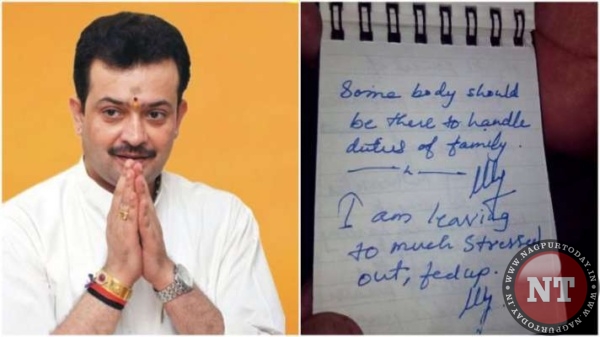 Some body should
be there to handle
duties of family.
I am leaving
to much stressed
out, fedup.
WWW.NAGPURTODAY.IN
NT
WWW.NAGPURTODAY.IN